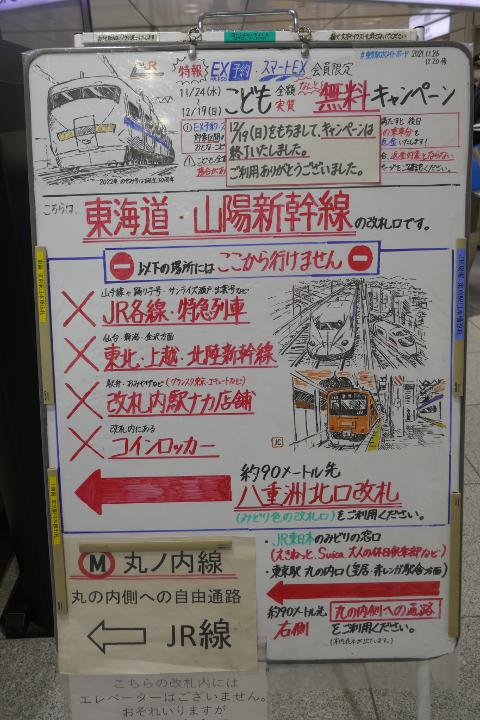 東京駅ホワイトボード 2021.11.26
12.20改
特報 EX予約・スマートEX 会員限定
11/24(水)
12/19(日)
こども 全額 実質 なんと 無料キャンペーン
12/19(日)をもちまして、キャンペーンは
終了いたしました。
ご利用ありがとうございました。
こちらは、東海道・山陽新幹線の改札口です。
以下の場所にはここから行けません
JR各線・特急列車
仙台・新潟・金沢方面
東北・上越・北陸新幹線
駅弁・おみやげなど(グランスタ東京・エキュートなど)
改札内駅ナカ店舗
改札内にある
コインロッカー
約90メートル先
八重洲北口改札
(みどり色の改札口)をご利用ください。
・JR東日本のみどりの窓口
(えきねっと、Suica、大人の休日倶楽部など)
・東京駅 丸の内口(皇居・赤レンガ駅舎方面)
約90メートル先 丸の内側への通路
右側 をご利用ください。
M 丸ノ内線
丸の内側への自由通路
JR線
こちらの改札内には
エレベーターはございません。
おそれいりますが